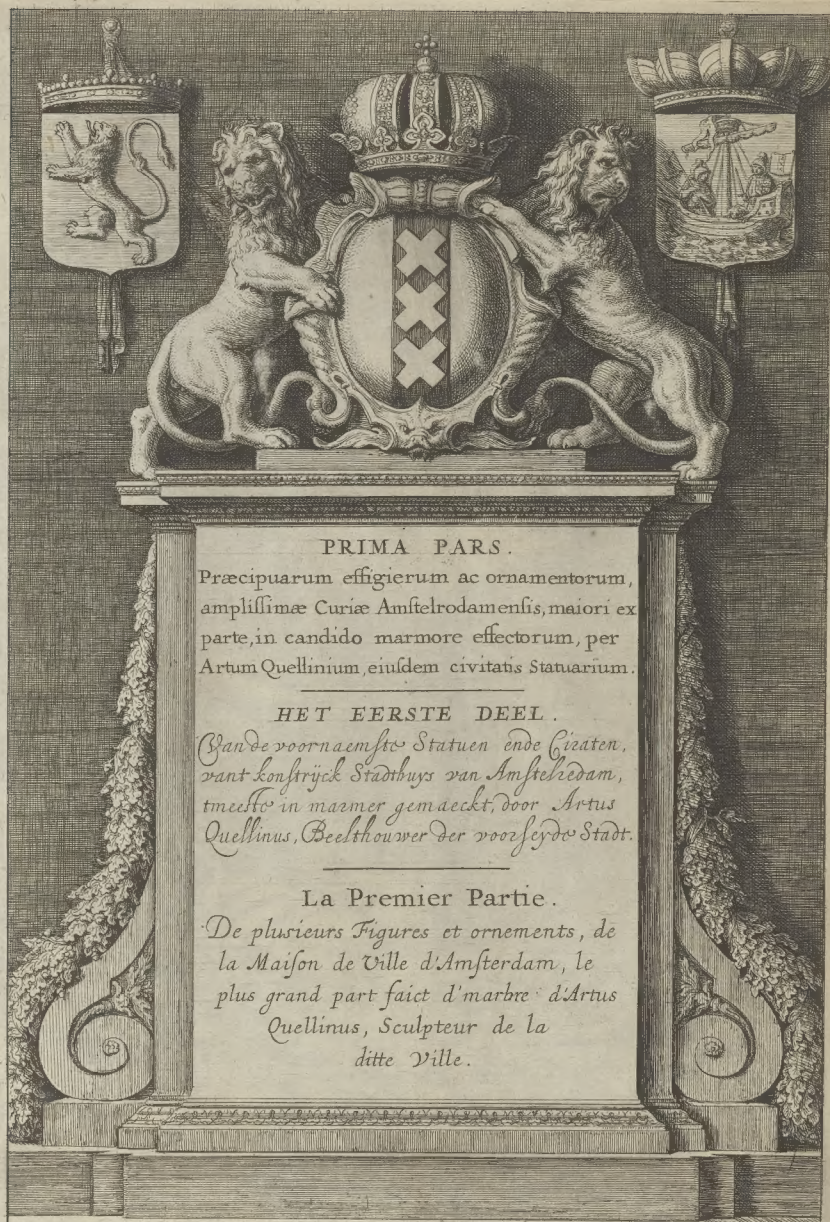 PRIMA PARS.
Præcipuarum effigierum ac ornamentorum,
ampliſſimæ Curiæ Amſtelrodamenſis, maiori ex
parte, in candido marmore effectorum, per
Artum Quellinium, eiuſdem civitatis Statuarium.
HET EERSTE DEEL.
Van de voornaemſte Statuen ende Ciraten,
vant konſtrijck Stadthuys van Amſtelredam,
tmeeſte in marmer gemaeckt, door Artus
Quellinus, Beelthouwer der voorſeyde Stadt.
La Premier Partie.
De plusieurs Figures et ornements, de
la Maiſon de Ville d'Amſterdam, le
plus grand part faict d'marbre d'Artus
Quellinus, Sculpteur de la
ditte Ville.